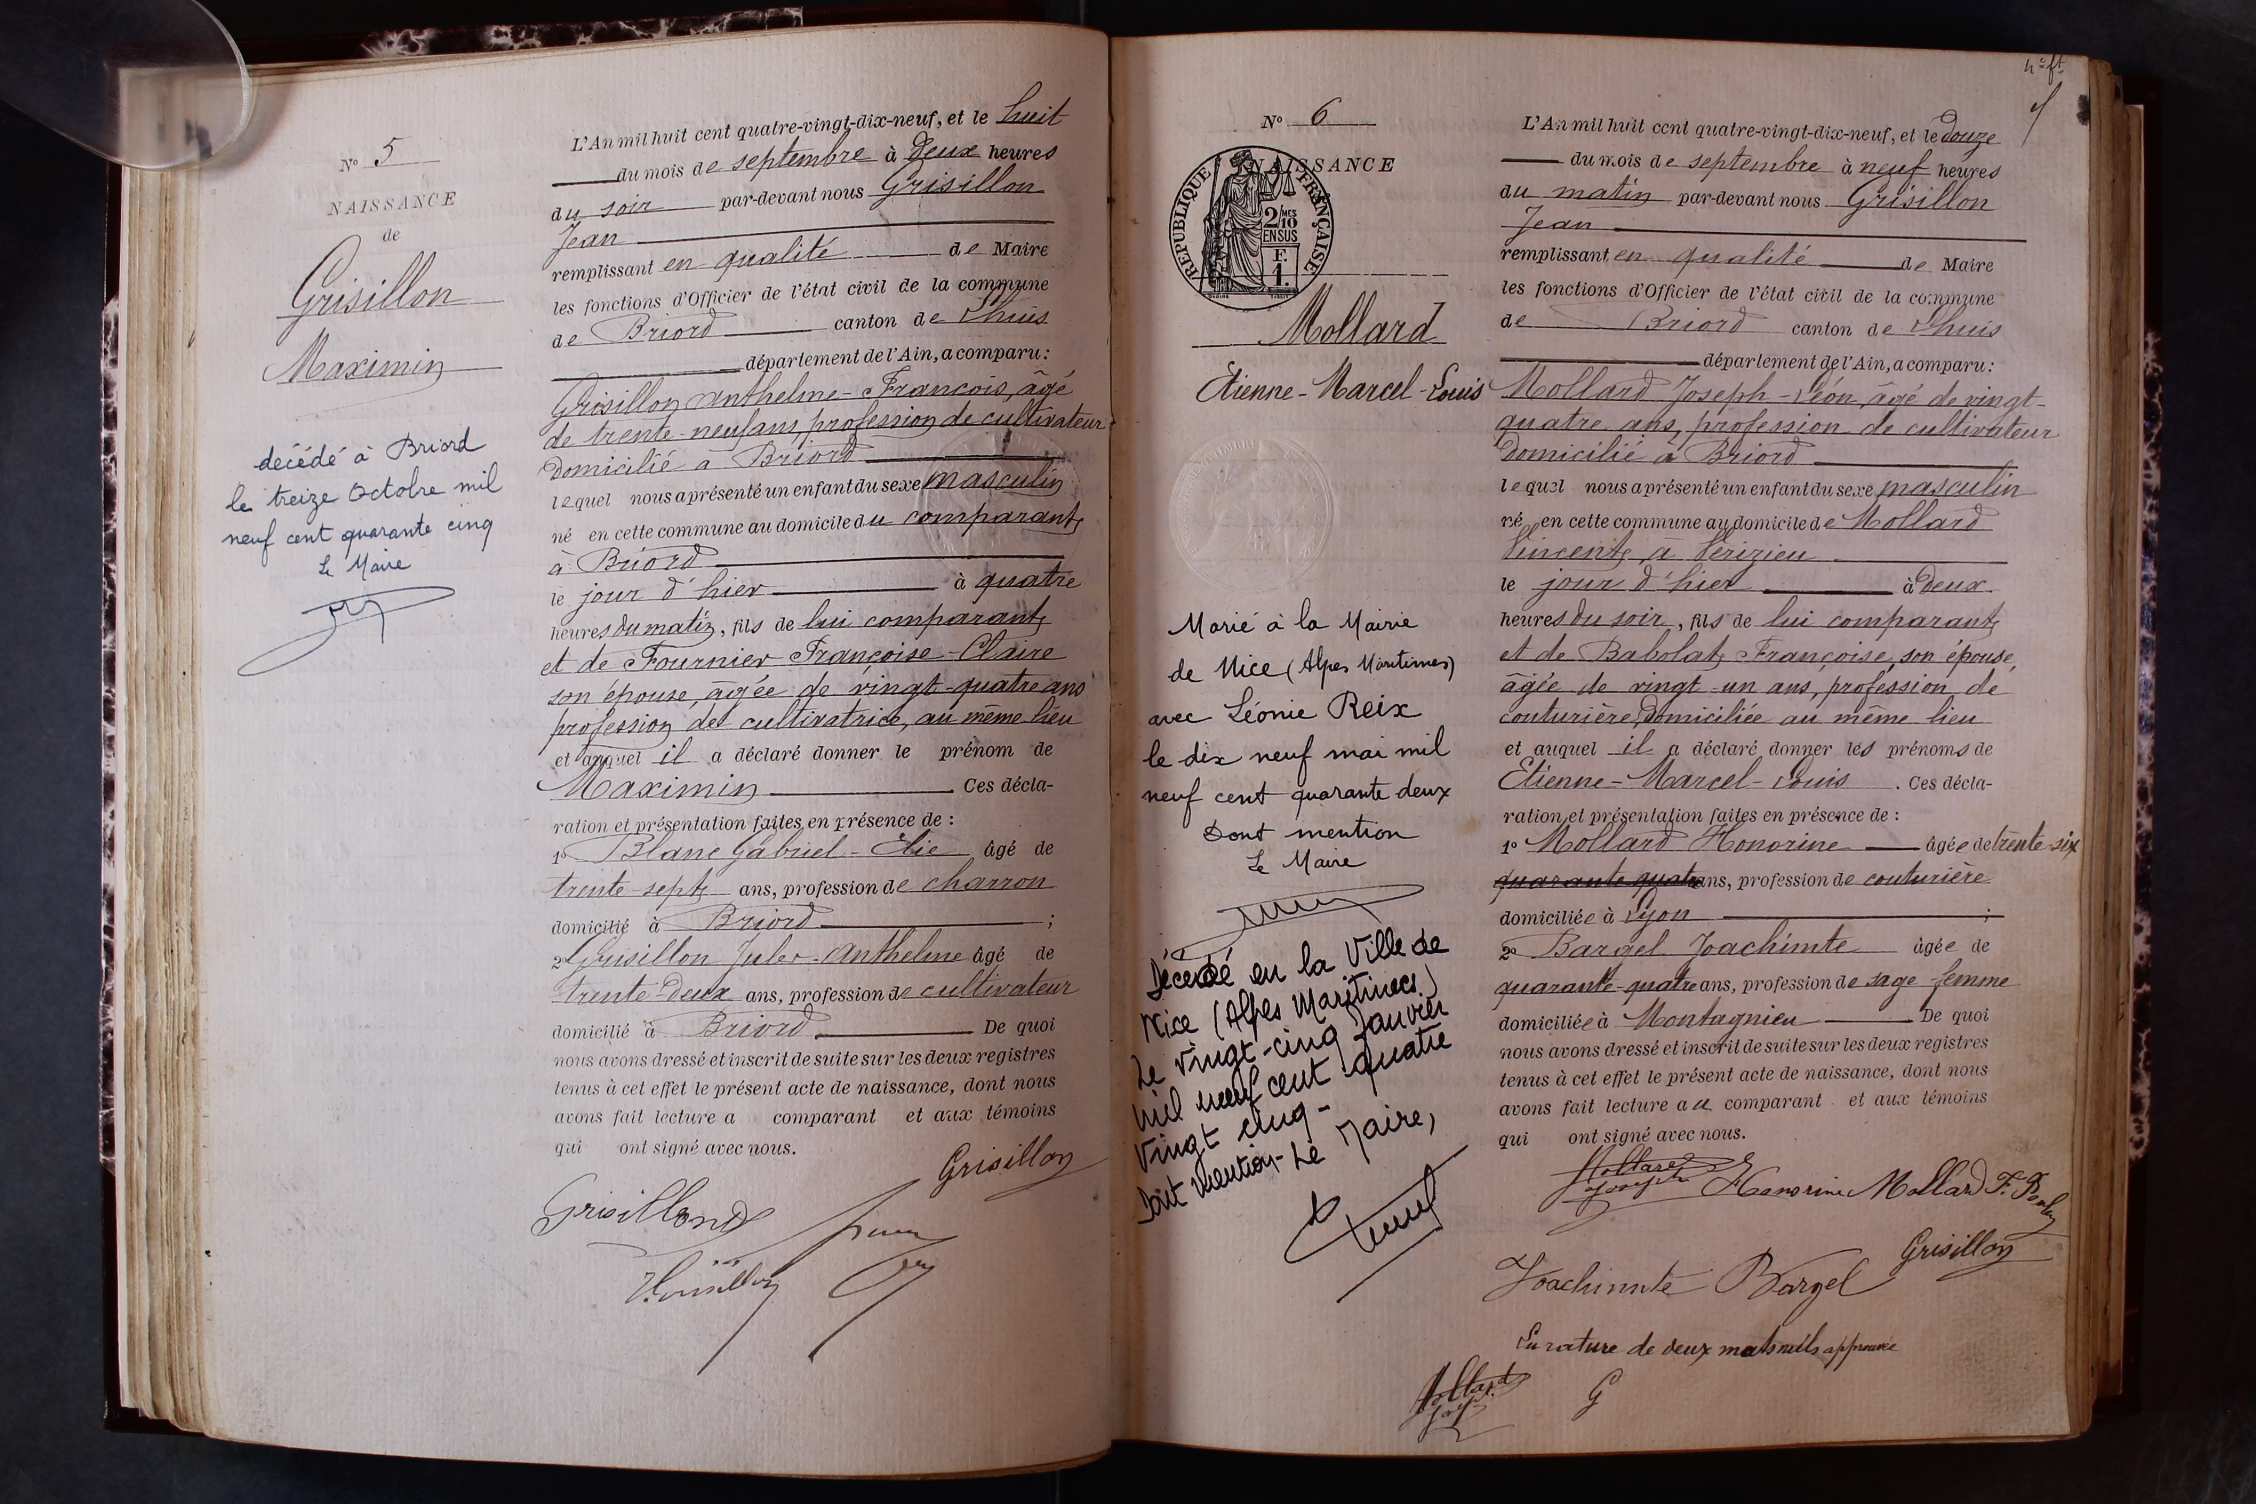 N° 5
NAISSANCE
de
Grisillon
Maximin
décédé à Briord
le treize Octobre mil
neuf cent quarante cinq
Le Maire
L'An mil huit cent quatre-vingt-dix-neuf, et le huit
du mois de septembre à deux heures
du soir par-devant nous Grisillon
Jean
remplissant en qualité de Maire
les fonctions d'Officier de l'état civil de la commune
de Briord canton de Lhuis
département de l'Ain, a comparu :
Grisillon Anthelme-François, âgé
de trente-neuf ans, profession de cultivateur
domicilié à Briord
lequel nous a présenté un enfant du sexe masculin
né en cette commune au domicile du comparant
à Briord
le jour d'hier à quatre
heures du matin, fils de lui comparant
et de Fournier Françoise-Claire
son épouse, âgée de vingt-quatre ans
profession de cultivatrice, au même lieu
et auquel il a déclaré donner le prénom de
Maximin Ces décla-
ration et présentation faites en présence de :
1° Blanc Gabriel-Elie âgé de
trente-sept ans, profession de charron
domicilié à Briord ;
2° Grisillon Jules-Anthelme âgé de
trente-deux ans, profession de cultivateur
domicilié à Briord De quoi
nous avons dressé et inscrit de suite sur les deux registres
tenus à cet effet le présent acte de naissance, dont nous
avons fait lecture a comparant et aux témoins
qui ont signé avec nous.
Grisillon
Grisillond
4e ft
N° 6
NAISSANCE
RÉPUBLIQUE FRANÇAISE
2/10 MES
EN SUS
F.
1.
Mollard
Etienne-Marcel-Louis
Marié à la Mairie
de Nice (Alpes Maritimes)
avec Léonie Reix
le dix neuf mai mil
neuf cent quarante deux
Dont mention
Le Maire
Décédé en la Ville de
Nice (Alpes Maritimes)
Le vingt-cinq Janvier
mil neuf cent quatre
vingt cinq-
Dont mention-Le Maire,
L'An mil huit cent quatre-vingt-dix-neuf, et le douze
du mois de septembre à neuf heures
du matin par-devant nous Grisillon
Jean
remplissant en qualité de Maire
les fonctions d'Officier de l'état civil de la commune
de Briord canton de Lhuis
département de l'Ain, a comparu :
Mollard Joseph-Léon, âgé de vingt-
quatre ans, profession de cultivateur
domicilié à Briord
lequel nous a présenté un enfant du sexe masculin
né en cette commune au domicile de Mollard
Vincent, à Vérizieu
le jour d'hier à deux
heures du soir, fils de lui comparant
et de Babolat Françoise, son épouse,
âgée de vingt-un ans, profession de
couturière, domiciliée au même lieu
et auquel il a déclaré donner les prénoms de
Etienne-Marcel-Louis . Ces décla-
ration et présentation faites en présence de :
1° Mollard Honorine âgée de trente-six
quarante quatre ans, profession de couturière
domiciliée à Lyon ;
2° Bargel Joachimte âgée de
quarante-quatre ans, profession de sage-femme
domiciliée à Montagnieu De quoi
nous avons dressé et inscrit de suite sur les deux registres
tenus à cet effet le présent acte de naissance, dont nous
avons fait lecture au comparant et aux témoins
qui ont signé avec nous.
Mollard
Joseph
Honorine Mollard
Grisillon
Joachimte Bargel
La rature de deux mots nuls approuvée
Mollard
Jos
G